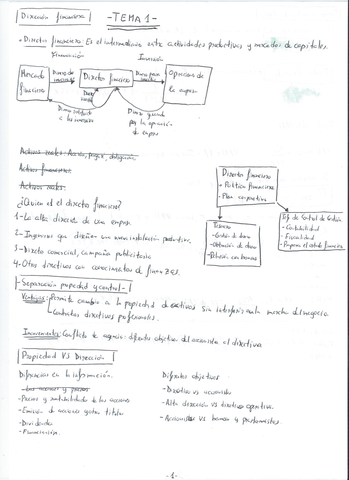 Dirección financiera
-TEMA 1-
• Director financiero: Es el intermediario entre actividades productivas y mercados de capitales.
Financiación
Inversión
Mercado financiero
Dinero de
Director financiero
Dinero para
Operaciones de la empresa
Dinero
Dinero
a los
Dinero
por la operación de empresa
Activos reales:
Activos financieros
Activos reales:
¿Quien es el director financiero?
1- La alta dirección de una empresa
2- Ingenieros que diseñan una nueva instalación productiva.
3- Director comercial, campaña publicitaria
4- Otros directivos con conocimientos de
Director financiero
• Política financiera
• Plan corporativo
Tesorero
• Gestión de
• Obtención de
• Relación con bancos
Jefe de Control de Gestión
• Contabilidad
• Fiscalidad
• Preparar el estado financiero
-Separación propiedad y control-
Ventajas: Permite cambios en la propiedad de activos sin interferir en la marcha del negocio.
Contratar directivos profesionales.
Inconvenientes: Conflicto de agencia: diferentes objetivos del accionista al directivo.
Propiedad VS Dirección
Diferencias en la información.
- Precios y rentabilidades de las acciones
- Emisión de acciones y otros títulos
- Dividendos
- Financiación.
Diferentes objetivos
- Directivos vs accionistas
- Alta dirección vs dirección operativa
- Accionistas vs bancos y prestamistas.
-1-